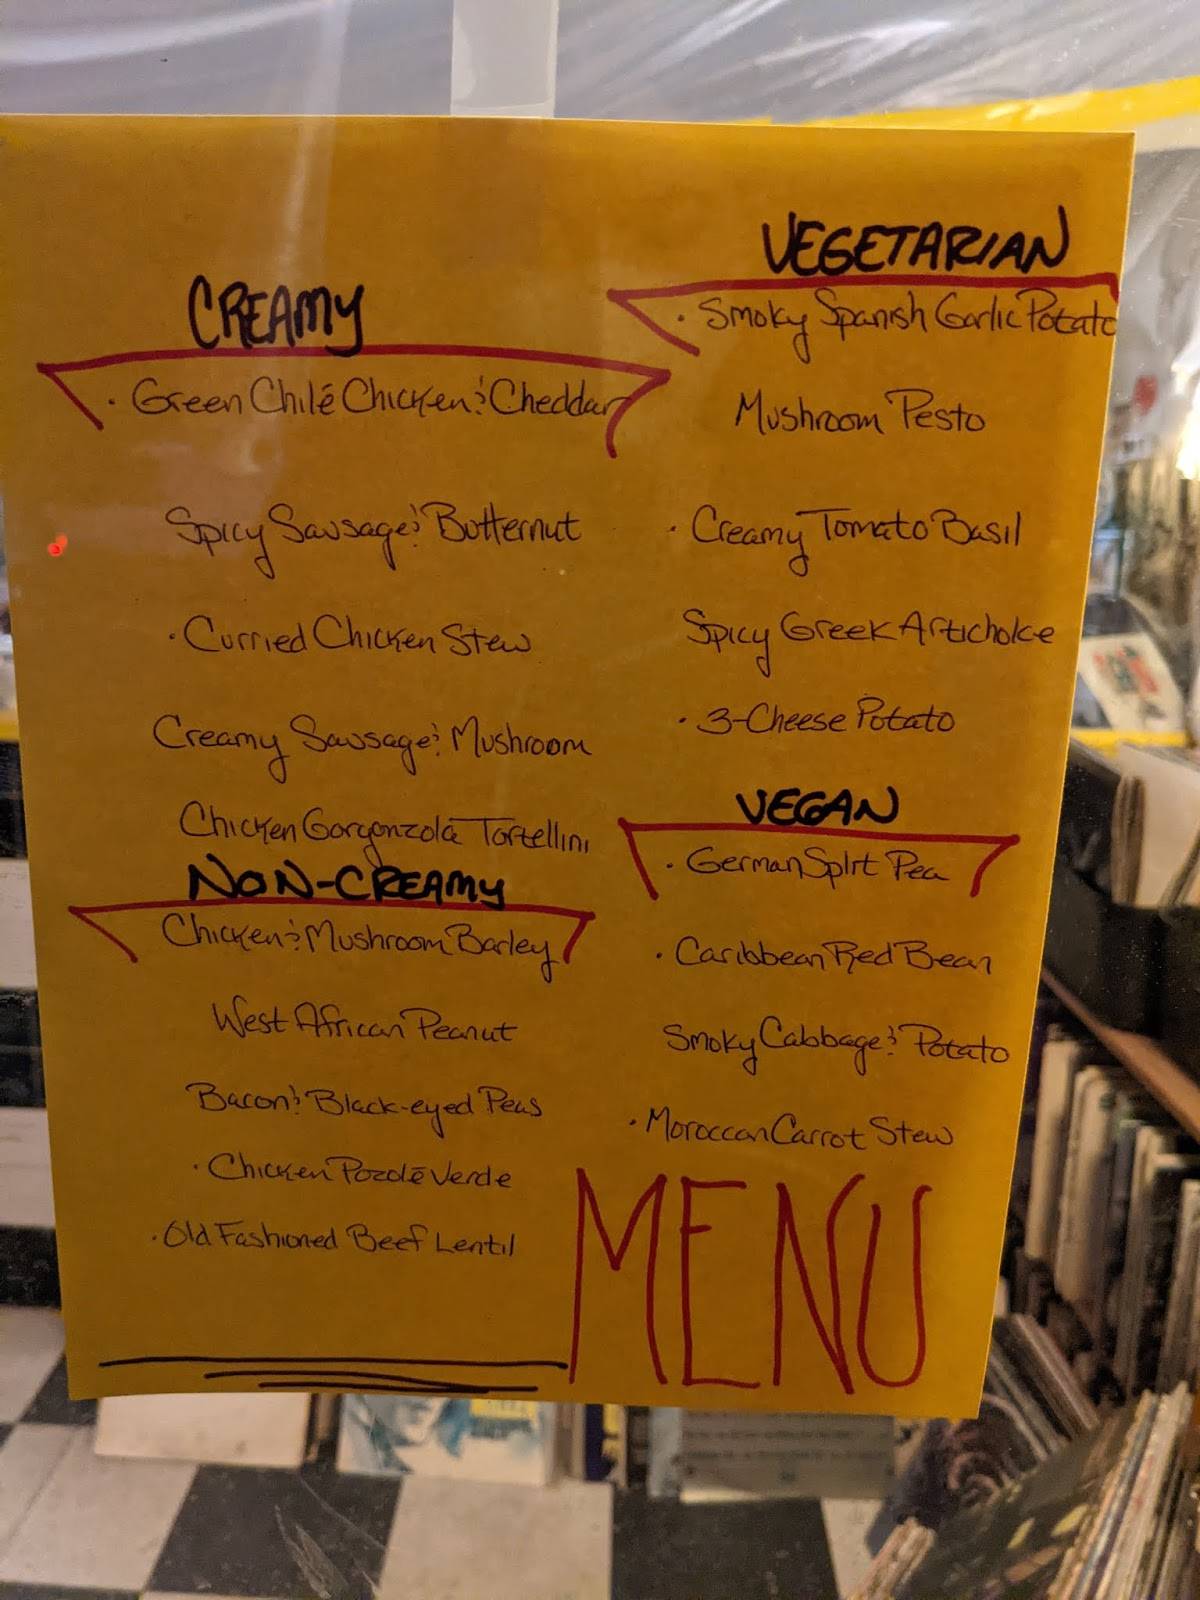 CREAMY
· Green Chilé Chicken & Cheddar
Spicy Sausage & Butternut
· Curried Chicken Stew
Creamy Sausage & Mushroom
Chicken Gorgonzola Tortellini
NON-CREAMY
Chicken & Mushroom Barley
West African Peanut
Bacon & Black-eyed Peas
· Chicken Pozolé Verde
· Old Fashioned Beef Lentil
VEGETARIAN
· Smoky Spanish Garlic Potato
Mushroom Pesto
· Creamy Tomato Basil
Spicy Greek Artichoke
· 3-Cheese Potato
VEGAN
· German Split Pea
· Caribbean Red Bean
Smoky Cabbage & Potato
· Moroccan Carrot Stew
MENU